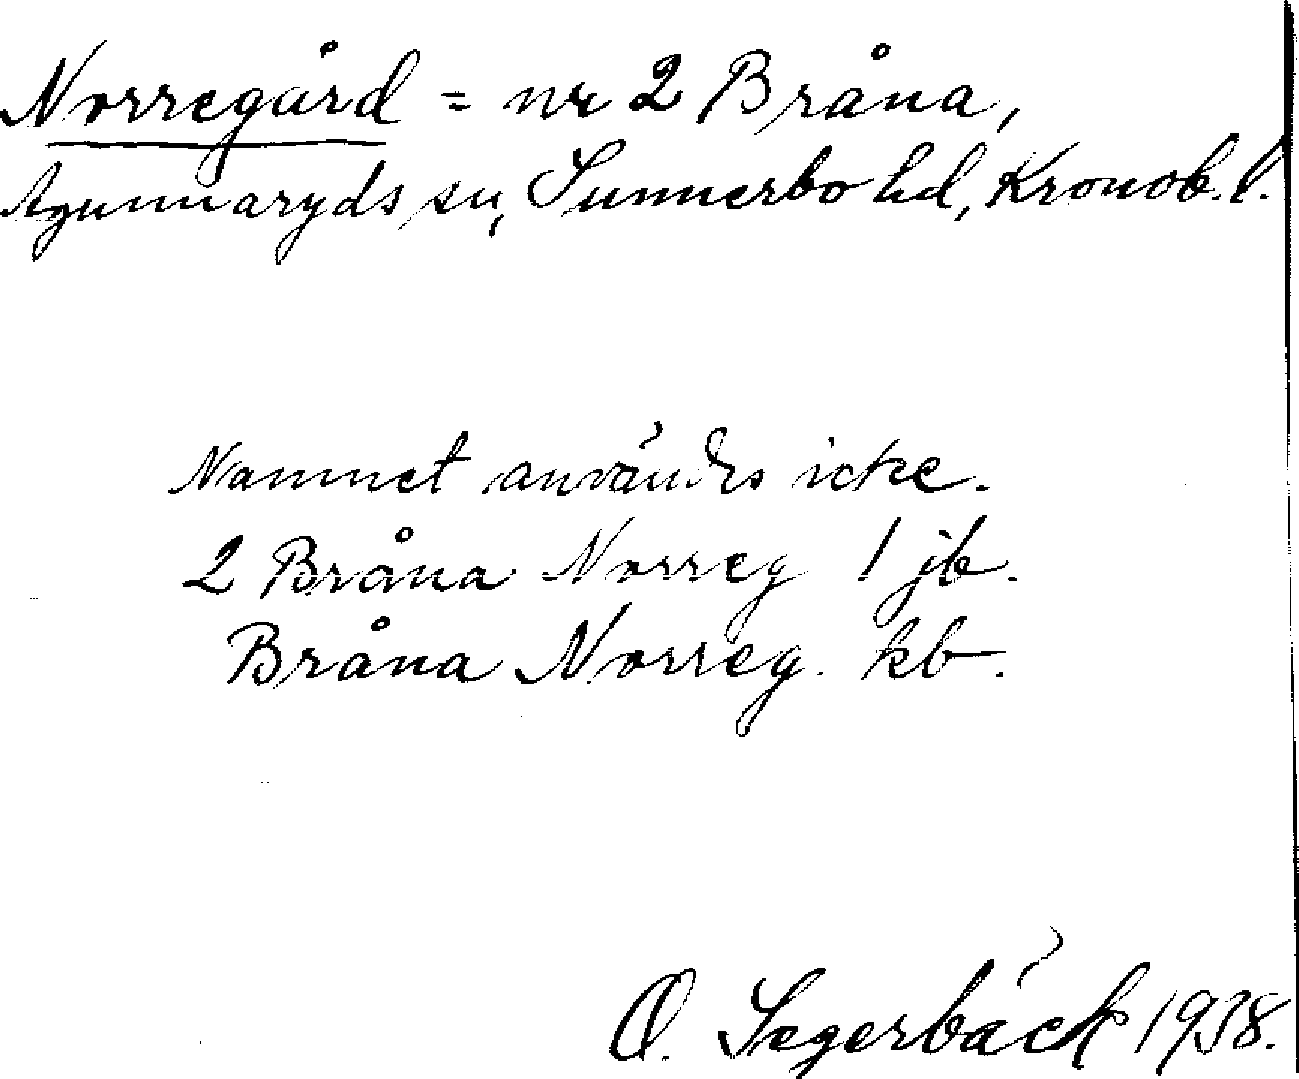 Norregård = nr 2 Bråna,
Agunnaryds sn, Sunnerbo hd, Kronob. l.
Namnet användes icke.
2 Bråna Norreg 1 jb.
Bråna Norreg. kb.
O. Segerbäck 1938.